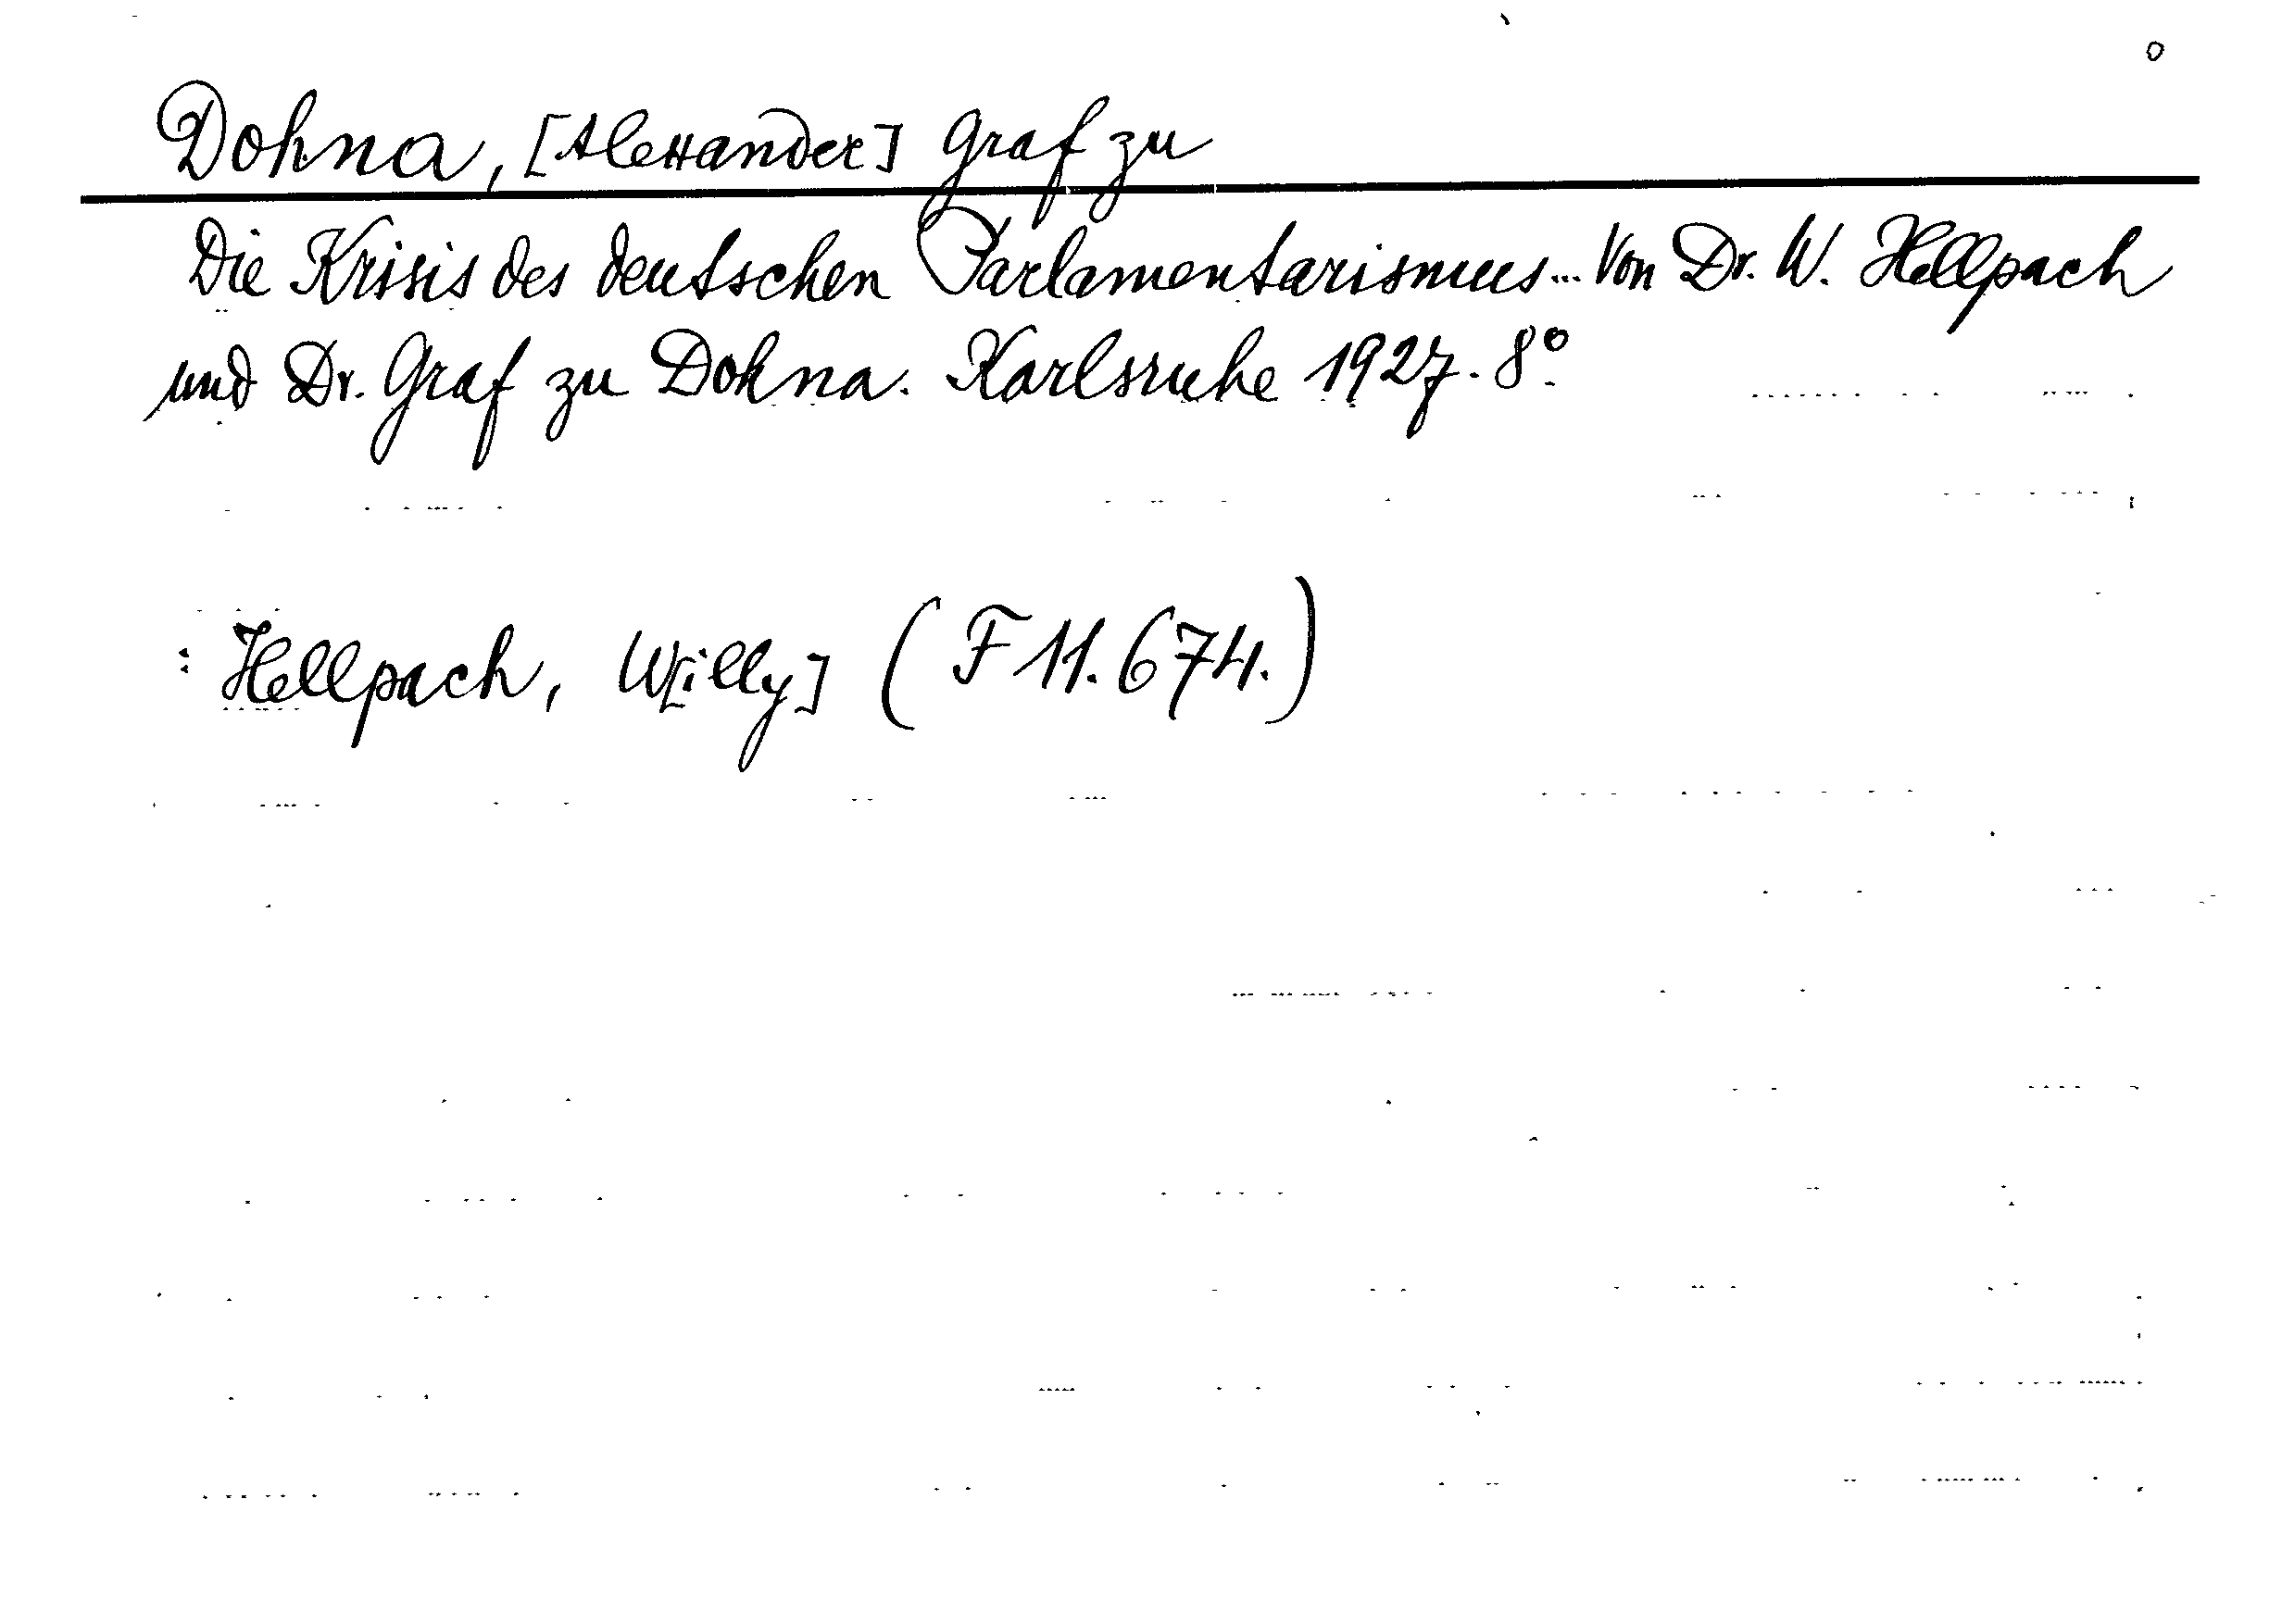 Dohna, [Alexander] Graf zu
Die Krisis des deutschen Parlamentarismus... Von Dr. W. Hellpach
und Dr. Graf zu Dohna. Karlsruhe 1927. 8°
: Hellpach, W[illy] (F 11.674.)